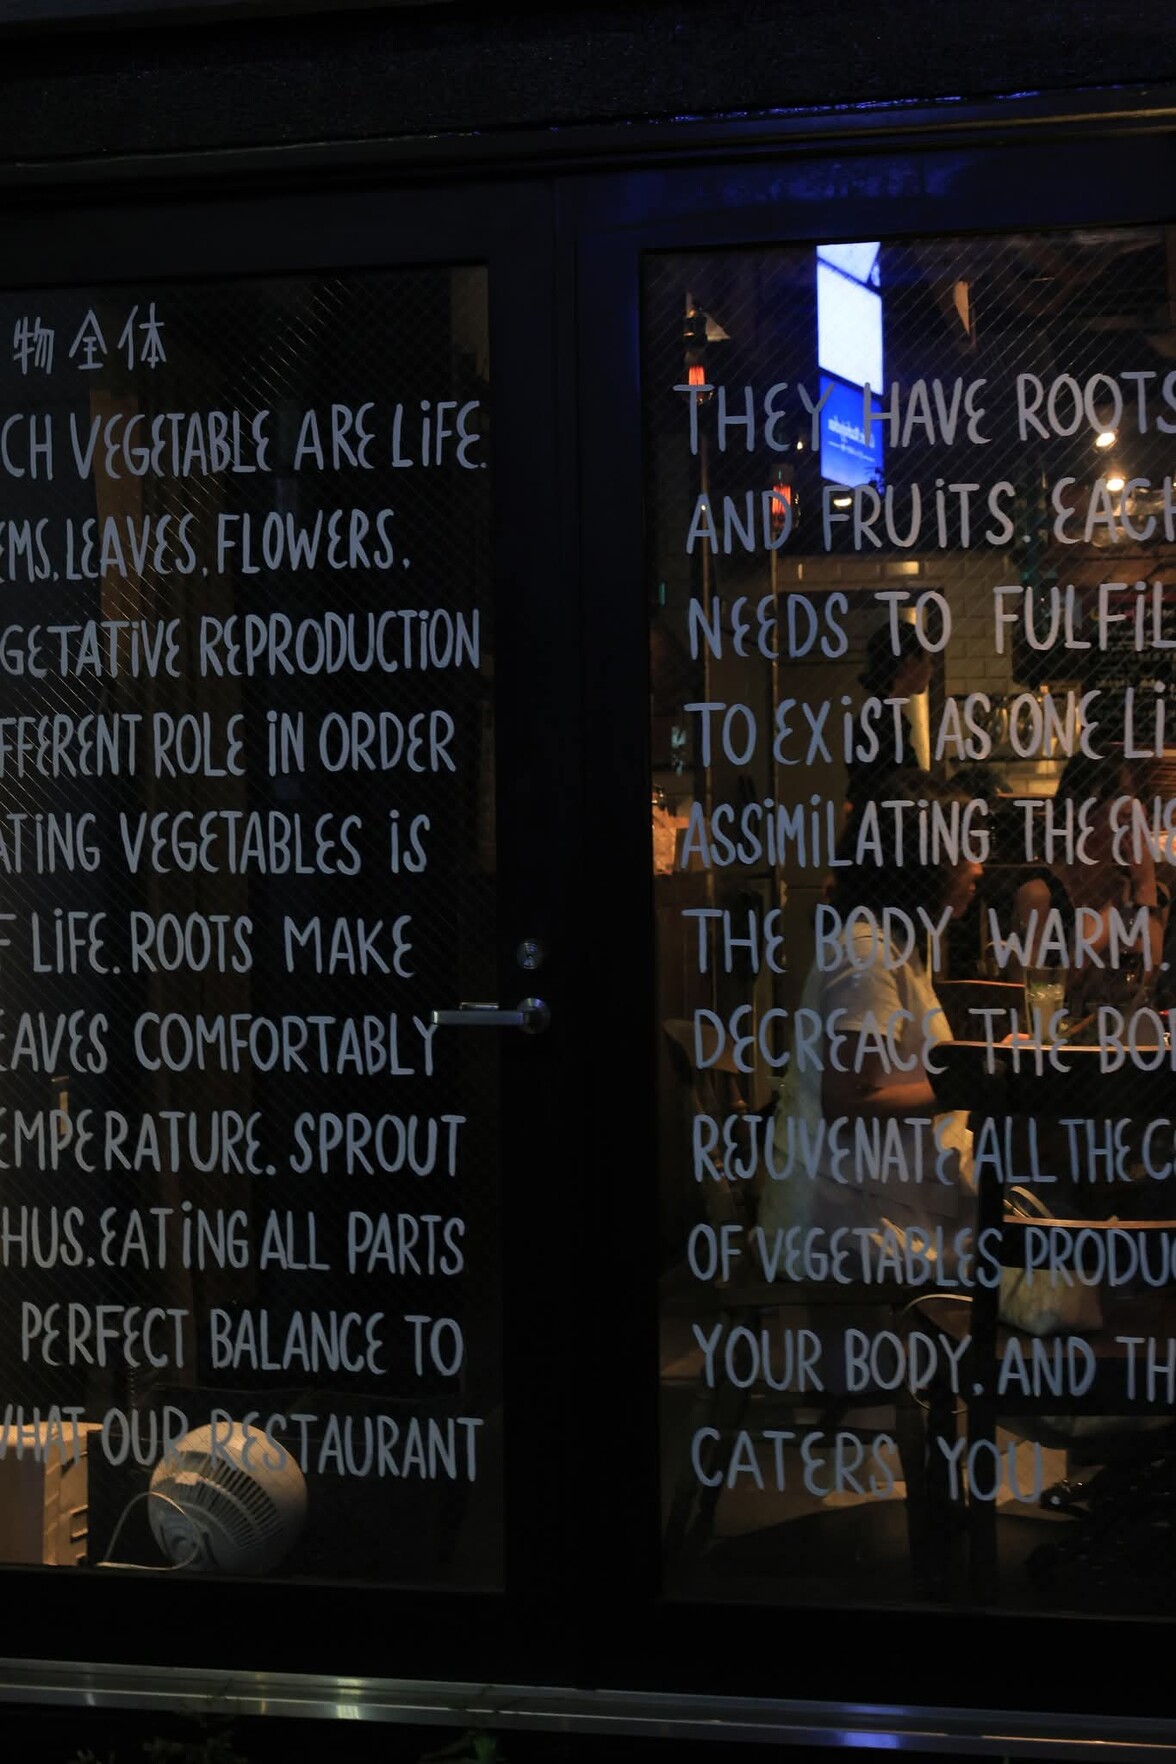 物全体
CH VEGETABLE ARE LIFE. THEY HAVE ROOTS
EMS, LEAVES, FLOWERS, AND FRUITS. EACH
GETATIVE REPRODUCTION NEEDS TO FULFIL
FFERENT ROLE IN ORDER TO EXIST AS ONE LI
ATING VEGETABLES IS ASSIMILATING THE ENE
F LIFE. ROOTS MAKE THE BODY WARM.
EAVES COMFORTABLY DECREACE THE BOD
EMPERATURE. SPROUT REJUVENATE ALL THE C
HUS, EATING ALL PARTS OF VEGETABLES PRODUC
PERFECT BALANCE TO YOUR BODY, AND TH
WHAT OUR RESTAURANT CATERS YOU.